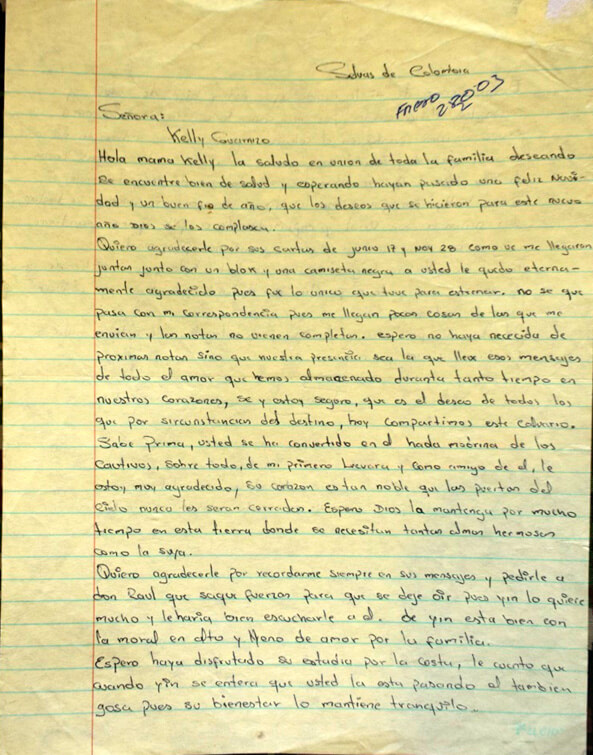 Selvas de Colombia
Enero
28 2003
Señora:
Kelly Guarnizo
Hola mama Kelly la saludo en union de toda la familia deseando
se encuentre bien de salud y esperando hayan pasado una feliz Navi-
dad y un buen fin de año, que los deseos que se hicieron para este nuevo
año Dios se los complasca.
Quiero agradecerle por sus cartas de junio 17 y Nov 28 como ve me llegaron
juntas junto con un blok y una camiseta negra a usted le quedo eterna-
mente agradecido pues fue lo unico que tuve para estrenar. no se que
pasa con mi correspondencia pues me llegan pocas cosas de las que me
envian y las notas no vienen completas. espero no haya nececida de
proximas notas sino que nuestra presencia sea la que lleve esos mensajes
de todo el amor que hemos almacenado durante tanto tiempo en
nuestros corazones, se y estoy seguro, que es el deseo de todos los
que por sircunstancias del destino, hoy compartimos este calvario.
Sabe Prima, usted se ha convertido en el hada madrina de los
cautivos, sobre todo, de mi primero Guevara y como amigo de el, le
estoy muy agradecido, su corazon es tan noble que las puertas del
Cielo nunca les seran cerradas. Espero Dios la mantenga por mucho
tiempo en esta tierra donde se necesitan tantas almas hermosas
como la suya.
Quiero agradecerle por recordarme siempre en sus mensajes y pedirle a
don Raul que saque fuerzas para que se deje oir pues yin lo quiere
mucho y le haria bien escucharle a el. de yin esta bien con
la moral en alto y lleno de amor por la familia.
Espero haya disfrutado su estudia por la costa, le cuento que
cuando yin se entera que usted la esta pasando el tambien
gosa pues su bienestar lo mantiene tranquilo..